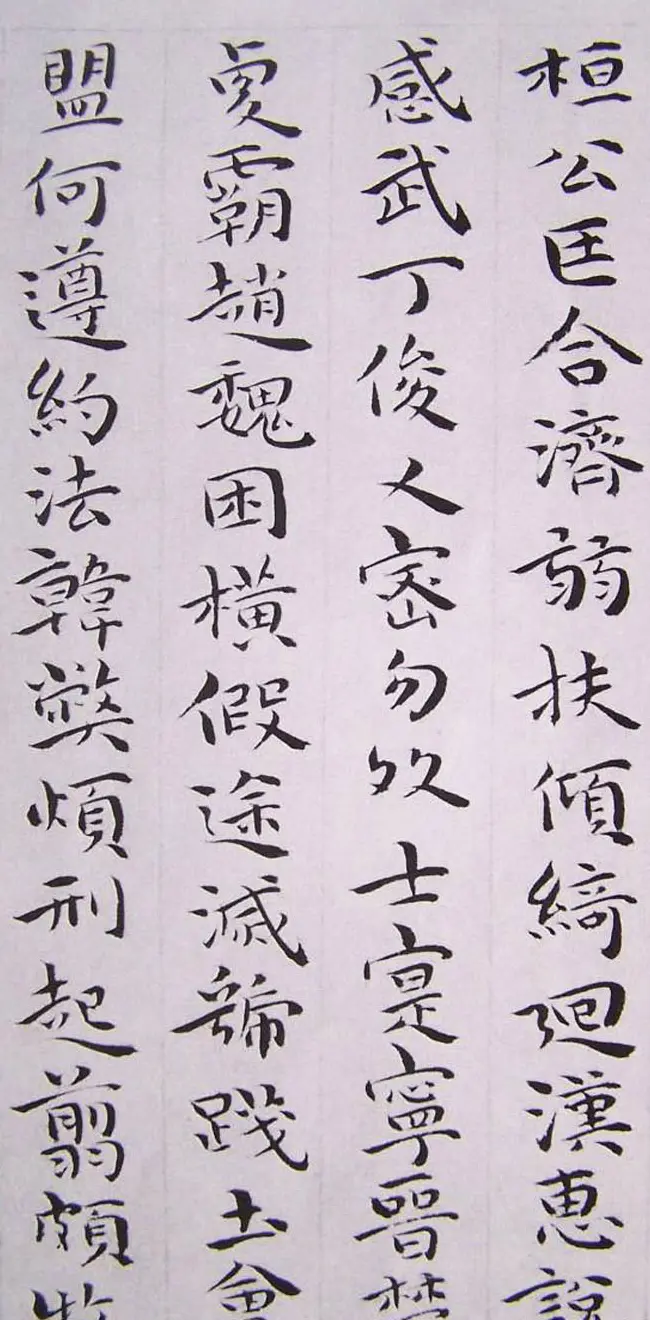 桓公匡合濟弱扶傾綺廻漢惠說
感武丁俊乂密勿多士寔寧晉楚
更霸趙魏困橫假途滅虢踐土會
盟何遵約法韓弊煩刑起翦頗牧